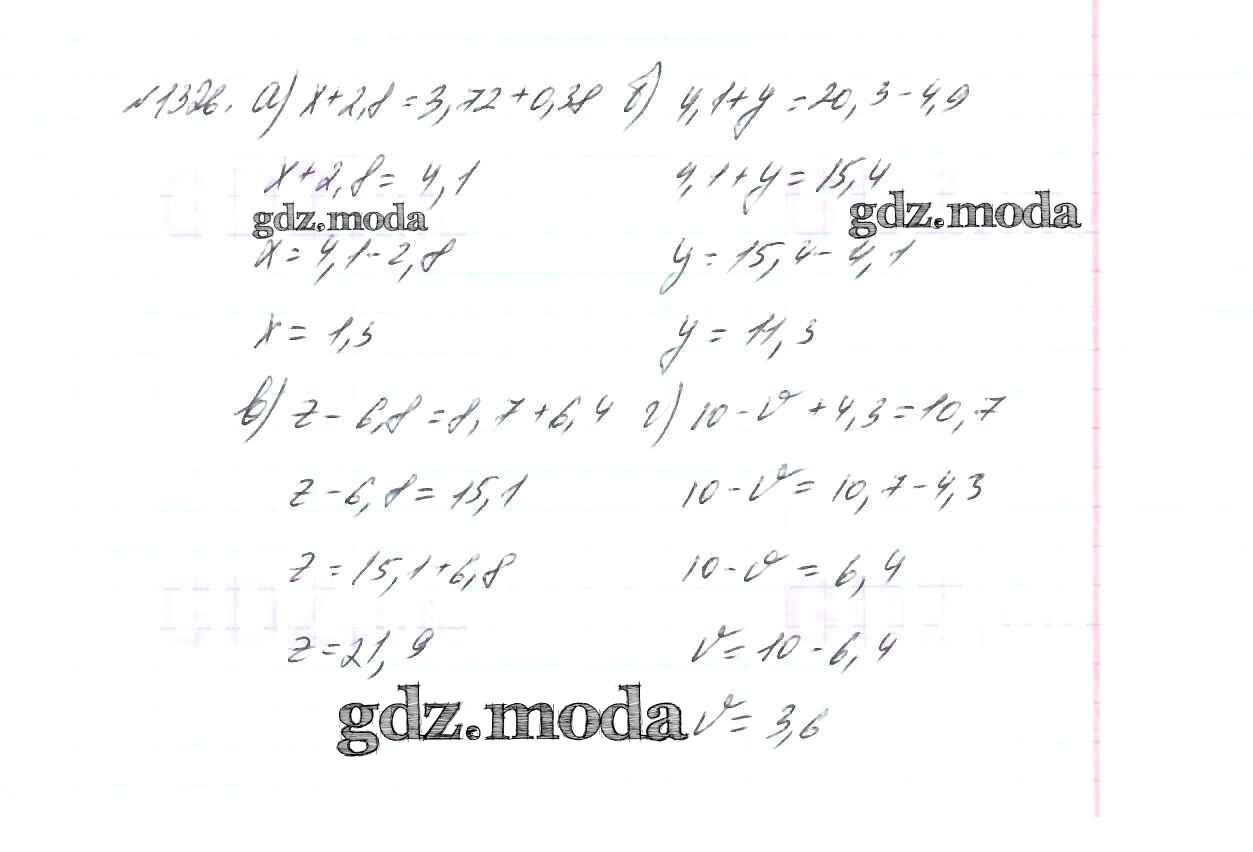 №1326. а) x+2,8=3,72+0,38 б) 4,1+y=20,3-4,9
x+2,8=4,1 4,1+y=15,4
gdz.moda gdz.moda
x=4,1-2,8 y=15,4-4,1
x=1,3 y=11,3
в) z-6,8=8,7+6,4 г) 10-v+4,3=10,7
z-6,8=15,1 10-v=10,7-4,3
z=15,1+6,8 10-v=6,4
z=21,9 v=10-6,4
gdz.moda v=3,6